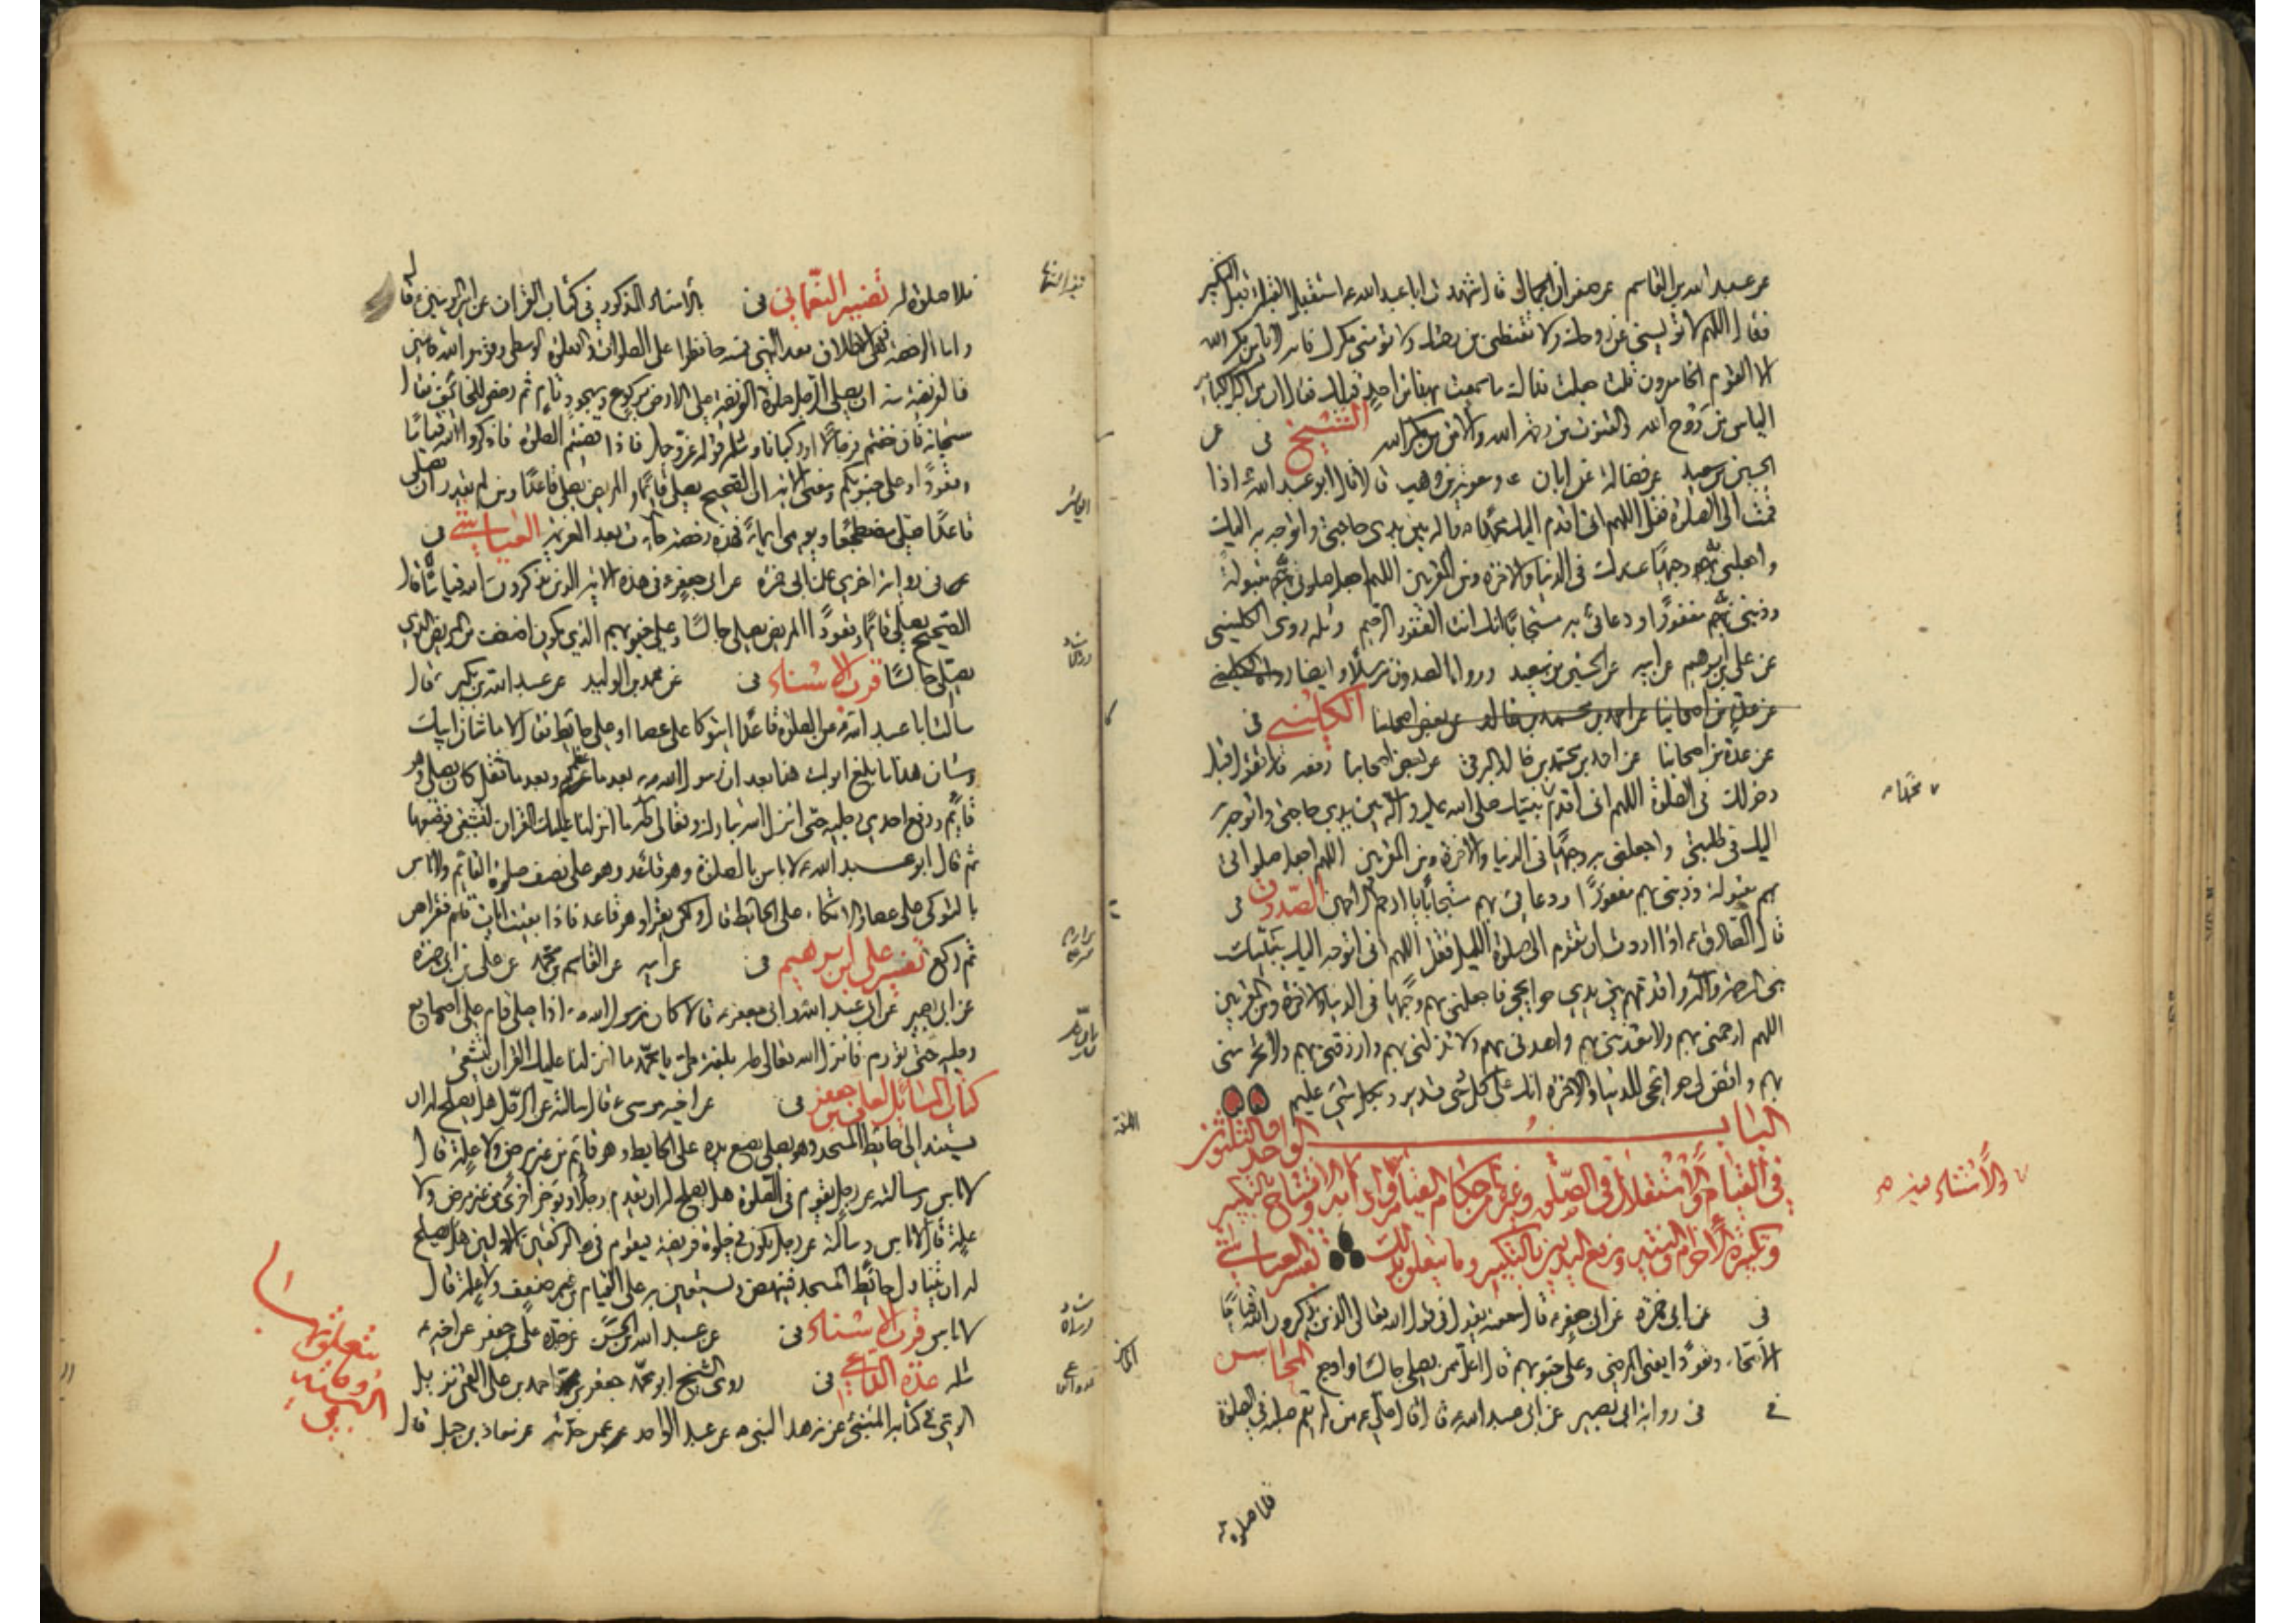 عن عبد الله بن القاسم عن صفوان الجمال قال شهدت ابا عبد الله ع استقبل القبلة قبل التكبير
فقال اللهم لا تؤيسني من روحك ولا تقنطني من رحمتك ولا تؤمني مكرك فانه لا يأمن مكر الله
الا القوم الخاسرون قلت جعلت فداك ما سمعت بهذا من احد قبلك فقال ان من اكبر الكبائر
الياس من روح الله والقنوط من رحمة الله والامن من مكر الله الشيخ في عن
الحسين بن سعيد عن فضالة عن ابان و معوية بن وهب قالا قال ابو عبد الله ع اذا
قمت الى الصلوة فقل اللهم اني اقدم اليك محمدا ص واله بين يدي حاجتي واتوجه به اليك
واجعلني به وجيها عندك في الدنيا والاخرة ومن المقربين اللهم اجعل صلوتي به مقبولة
وذنبي به مغفورا ودعائي به مستجابا انك انت الغفور الرحيم ومثله روى الكليني
عن علي بن ابرهيم عن ابيه عن الحسين بن سعيد ورواه الصدوق مرسلا وايضا رواه الكليني
عن عدة من اصحابنا عن احمد بن محمد بن خالد عن بعض اصحابنا الكليني في
عن عدة من اصحابنا عن احمد بن محمد بن خالد البرقي عن بعض اصحابنا رفعه قال تقول قبل
دخولك في الصلوة اللهم اني اقدم نبيك صلى الله عليه واله بين يدي حاجتي واتوجه به
اليك في طلبتي واجعلني به وجيها في الدنيا والاخرة ومن المقربين اللهم اجعل صلواتي
بهم مقبولة وذنبي بهم مغفورا ودعائي بهم مستجابا يا ارحم الراحمين الصدوق في
قال الصادق ع اذا اردت ان تقوم الى صلوة الليل فقل اللهم اني اتوجه اليك بنبيك
نبي الرحمة واله واقدمهم بين يدي حوايجي فاجعلني بهم وجيها في الدنيا والاخرة ومن المقربين
اللهم ارحمني بهم ولا تعذبني بهم واهدني بهم ولا تضلني بهم وارزقني بهم ولا تحرمني
بهم واقض لي حوائجي للدنيا والاخرة انك على كل شيء قدير وبكل شيء عليم
الباب الواحد والثلثون
في القيام والاستقلال في الصلوة وغيرها من احكام القيام وافتتاح التكبير
وتكبيرة الاحرام والنية ورفع اليدين بالتكبير وما يتعلق بذلك تفسير العياشي
في عن ابي حمزة عن ابي جعفر ع قال سمعته يقول في قول الله تعالى الذين يذكرون الله قياما
الاصحاء وقعودا يعني المرضى وعلى جنوبهم قال اعل ممن يصلي جالسا واوجع المحاسن
في في رواية ابي بصير عن ابي عبد الله ع قال قال علي ع من لم يقم صلبه في الصلوة
فلا صلوة
محمدا
والاستناد فيه
فلا صلوة له تفسير النعماني في بالاسناد المذكور في كتاب القران عن امير المؤمنين ع قال
واما الرخصة التي هي الاطلاق بعد النهي فمنه حافظوا على الصلوات والصلوة الوسطى وقوموا لله قانتين
فالفريضة منه ان يصلي الرجل صلوة الفريضة على الارض بركوع وسجود تام ثم رخص للخائف فقال
سبحانه فان خفتم فرجالا او ركبانا ومثله قوله عز وجل فاذا قضيتم الصلوة فاذكروا الله قياما
وقعودا وعلى جنوبكم ومعنى الاية ان الصحيح يصلي قائما والمريض يصلي قاعدا ومن لم يقدر ان يصلي
قاعدا صلى مضطجعا ويومي ايماء فهذه رخصة جاءت بعد العزيمة العياشي في
عن في رواية اخرى عن ابي حمزة عن ابي جعفر ع في هذه الاية الذين يذكرون الله قياما قال
الصحيح يصلي قائما وقعودا المريض يصلي جالسا وعلى جنوبهم الذي يكون اضعف من المريض الذي
يصلي جالسا قرب الاسناد في عن محمد بن الوليد عن عبد الله بن بكير قال
سالت ابا عبد الله ع عن الصلوة قاعدا او يتوكا على عصا او على حايط فقال لا ما شان ابيك
وشان هذا ما بلغ ابوك هذا بعد ان رسول الله ص بعد ما عظم وبعد ما ثقل كان يصلي وهو
قائم ورفع احدى رجليه حتى انزل الله تبارك وتعالى طه ما انزلنا عليك القران لتشقى فوضعها
ثم قال ابو عبد الله ع لا باس بالصلوة وهو قاعد وهو على نصف صلوة القائم ولا باس
بالتوكي على عصا والاتكاء على الحايط قال ولكن يقرا وهو قاعد فاذا بقيت ايات قام فقراهن
ثم ركع تفسير علي بن ابرهيم في عن ابيه عن القاسم بن محمد عن علي بن ابي حمزة
عن ابي بصير عن ابي عبد الله وابي جعفر ع قالا كان رسول الله ص اذا صلى قام على اصابع
رجليه حتى تورم فانزل الله تعالى طه بلغة طي يا محمد ما انزلنا عليك القران لتشقى
كتاب المسائل لعلي بن جعفر في عن اخيه موسى ع قال سالته عن الرجل هل يصلح له ان
يستند الى حائط المسجد وهو يصلي او يضع يده على الحايط وهو قائم من غير مرض ولا علة قال
لا باس وسالته عن رجل يقوم في الصلوة هل يصلح له ان يقدم رجلا ويؤخر اخرى من غير مرض ولا
علة قال لا باس وسالته عن رجل يكون في صلوة فريضة فيقوم في الركعتين الاوليين هل يصلح
له ان يتناول حائط المسجد فينهض ويستعين به على القيام من غير ضعف ولا علة قال
لا باس قرب الاسناد في عن عبد الله بن الحسن عن جده علي بن جعفر عن اخيه ع
مثله عدة الداعي في روى الشيخ ابو محمد جعفر بن احمد بن علي القمي نزيل
الري في كتابه المنبئ عن زهد النبي ص عن عبد الواحد عمن حدثه عن معاذ بن جبل قال